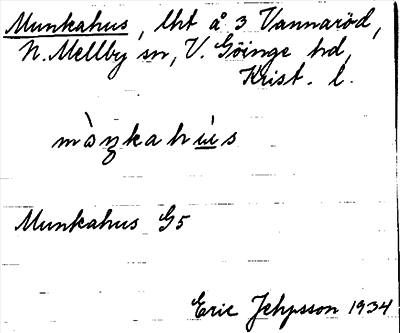 Munkahus, lht å 3 Vannaröd,
N. Mellby sn, V. Göinge hd,
Krist. l.
mòŋkahús
Munkahus G5
Eric Jehpsson 1934